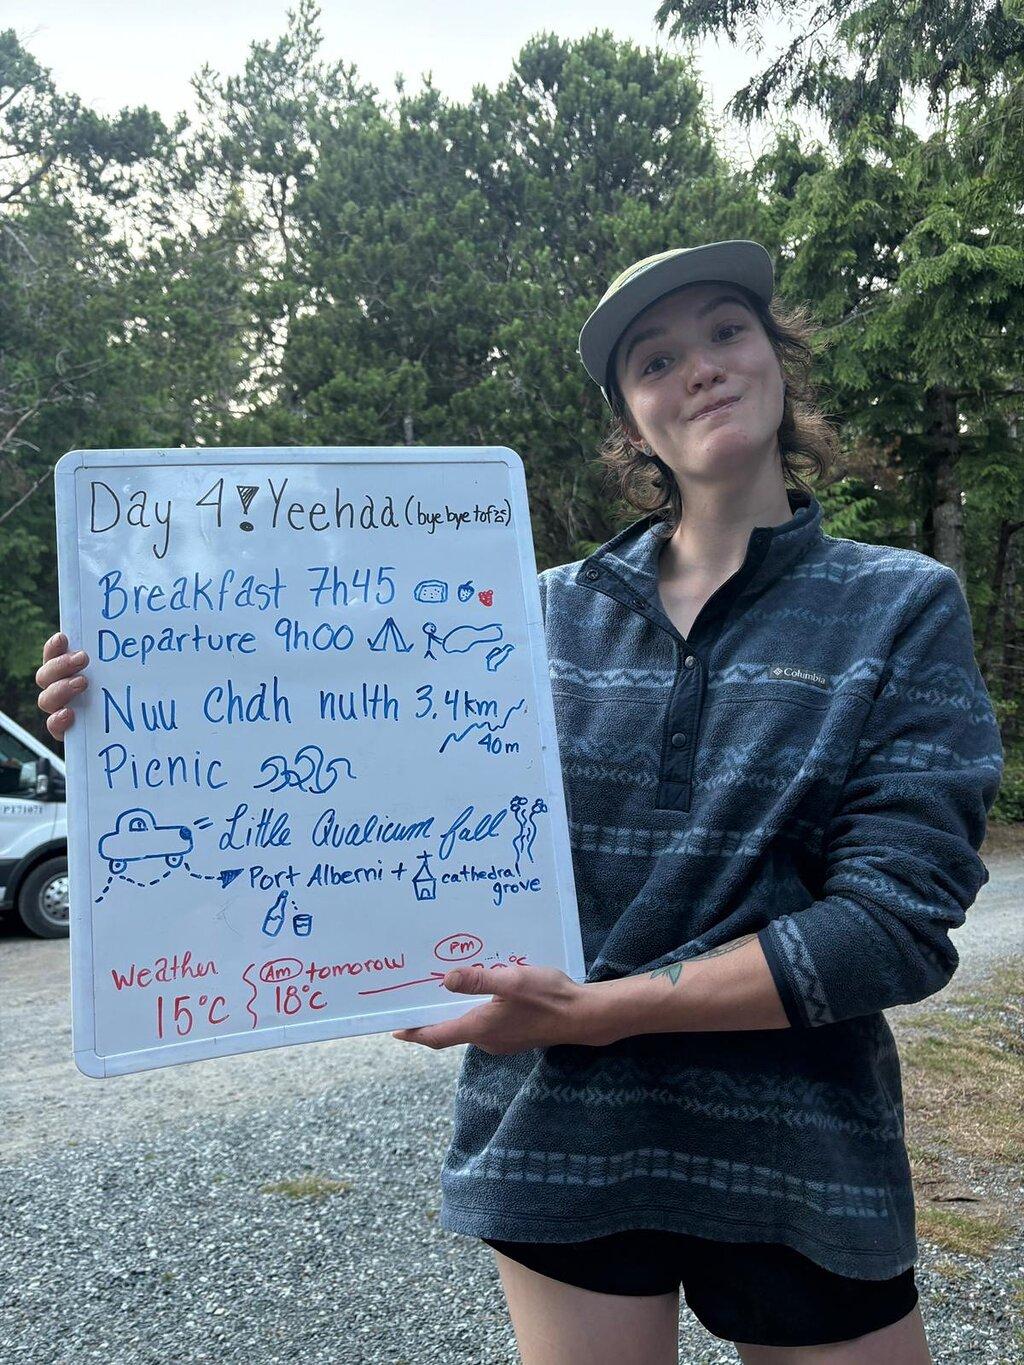 Day 4! Yeehaa (bye bye tof
Breakfast 7h45
Departure 9h00
Nuu chah nulth 3.4km
40m
Picnic
Little Qualicum fall
Port Alberni + cathedral grove
Weather { Am tomorow PM
15°C 18°C °C
Columbia